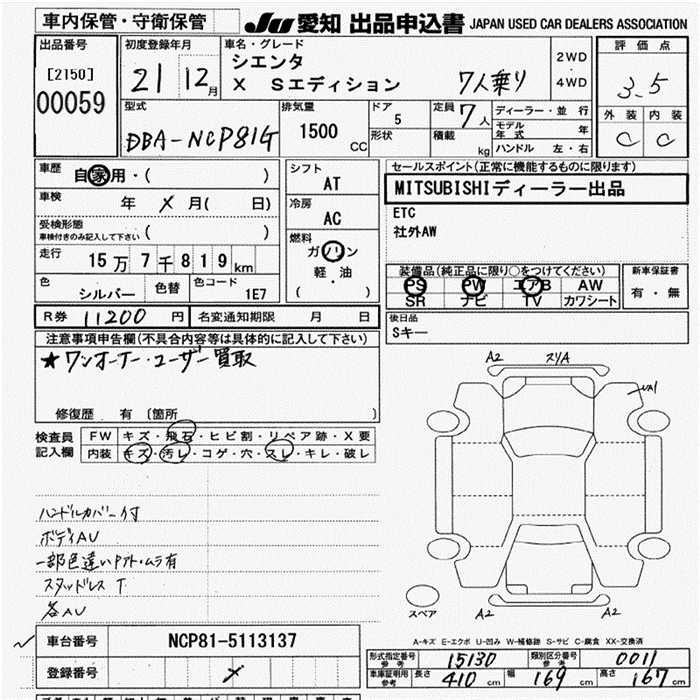 車内保管・守衛保管
JU 愛知 出品申込書 JAPAN USED CAR DEALERS ASSOCIATION
出品番号
[2150]
00059
初度登録年月
21 12月
車名・グレード
シエンタ
X Sエディション 7人乗り
2WD
・
4WD
評価点
3.5
外装 内装
C C
型式
DBA-NCP81G
排気量
1500 CC
ドア
5
形状
定員
7人
積載
kg
ディーラー・並行
モデル年式 年
ハンドル 左・右
車歴
自家用・( )
車検
年 〆 月( 日)
受検形態
車検付きのみ記入して下さい ( )
走行
15万7千819km
色
シルバー
色替
色コード
1E7
シフト
AT
冷房
AC
燃料
ガソリン
軽・油
( )
セールスポイント(正常に機能するものに限ります)
MITSUBISHIディーラー出品
ETC
社外AW
装備品(純正品に限り○をつけてください)
PS PW エアB AW
SR ナビ TV カワシート
新車保証書
有・無
後日品
Sキー
R券 11200 円
名変通知期限 月 日
注意事項申告欄(不具合内容等は具体的に記入して下さい)
★ワンオーナー・ユーザー買取
修復歴 有 〔箇所 〕
検査員
記入欄
FW キズ・飛石・ヒビ割・リペア跡・X要
内装 キズ・汚レ・コゲ・穴・スレ・キレ・破レ
ハンドルカバー付
ボディAU
一部色違いタッチ・ムラ有
スタッドレス T
各AU
A2 スリA
A2 A2
スペア
A-キズ E-エクボ U-凹み W-補修跡 S-サビ C-腐食 XX-交換済
車台番号 NCP81-5113137
登録番号 〆
形式指定番号
参考
15130
類別区分番号
参考
0011
車庫証明用
参考
長さ 410 cm
幅 169 cm
高さ 167 cm